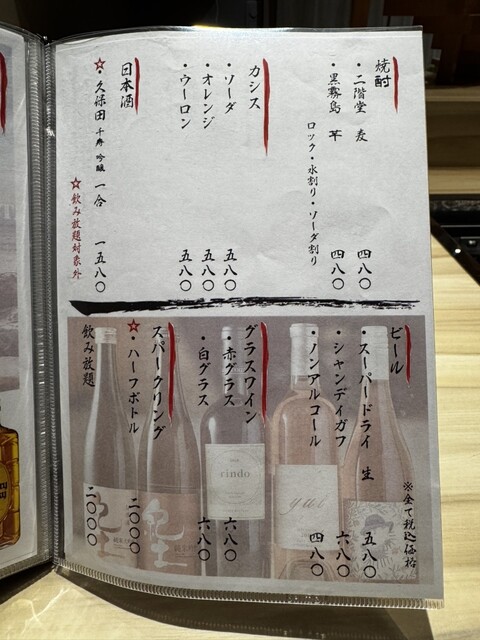 焼酎
・二階堂 麦 四八〇
・黒霧島 芋 四八〇
ロック・水割り・ソーダ割り
カシス
・ソーダ 五八〇
・オレンジ 五八〇
・ウーロン 五八〇
日本酒
☆・久保田 千寿 吟醸 一合 一五八〇
☆飲み放題対象外
※全て税込価格
ビール
・スーパードライ 生 五八〇
・シャンディガフ 六八〇
・ノンアルコール 四八〇
グラスワイン
・赤グラス 六八〇
・白グラス 六八〇
スパークリング
☆・ハーフボトル 二〇〇〇
飲み放題 二〇〇〇
rindo
yui
紀土
紀土